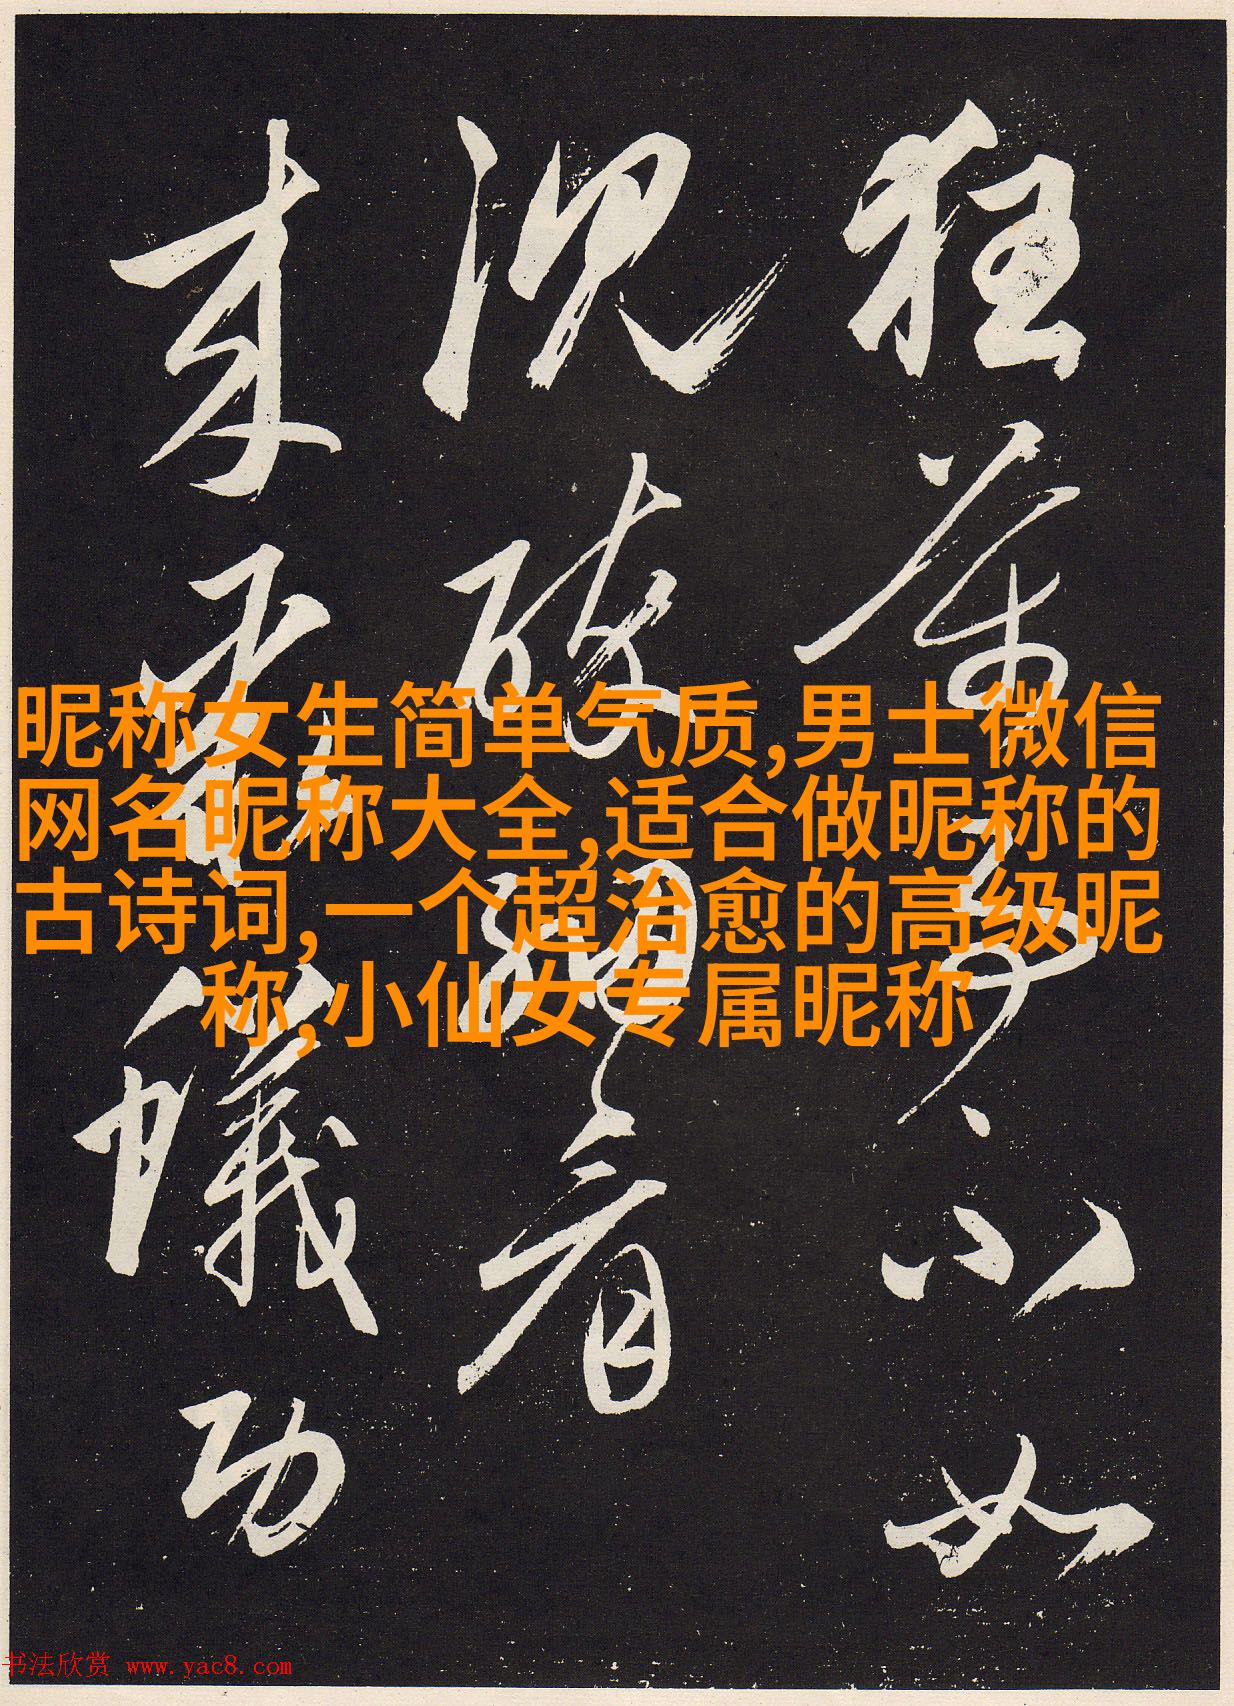 昵称女生简单气质,男士微信
网名昵称大全,适合做昵称的
古诗词,一个超治愈的高级昵
称,小仙女专属昵称
狂不如
沉看
来蟻功
书法欣赏 www.yac8.com